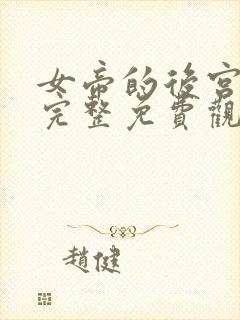 女帝的後宮
完整免費觀
趙健